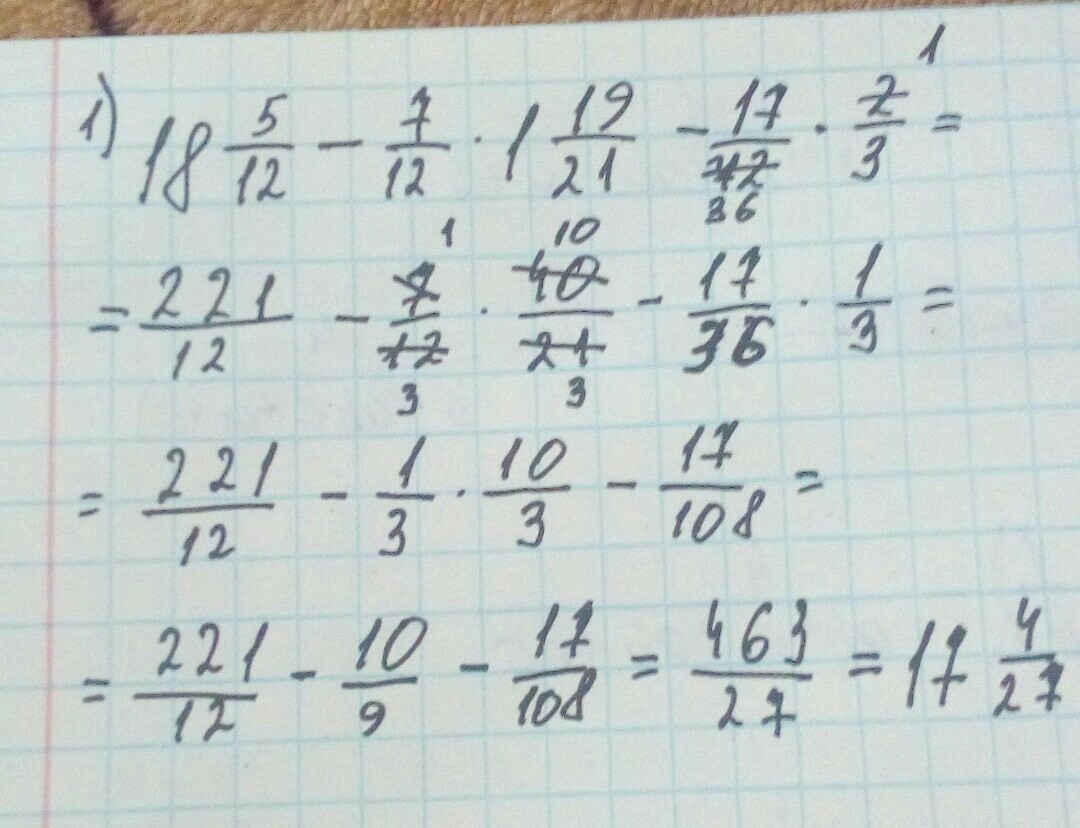 1) 18 5/12 − 7/12 · 1 19/21 − 17/72 · 2/3 =
1
36
= 221/12 − 7/12 · 40/21 − 17/36 · 1/3 =
1 10
3 3
= 221/12 − 1/3 · 10/3 − 17/108 =
= 221/12 − 10/9 − 17/108 = 463/27 = 17 4/27